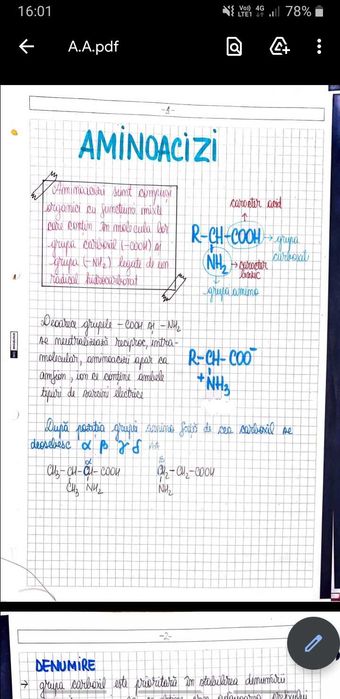 16:01 Vo)) 4G LTE1 78%
A.A.pdf
-1-
AMINOACIZI
Aminoacizii sunt compuși
organici cu funcțiuni mixte
care conțin în molecula lor
grupa carboxil (-COOH) și
grupa (-NH₂) legate de un
radical hidrocarbonat
caracter acid
R-CH-COOH → grupa
carboxil
NH₂ → caracter
bazic
grupa amino
Deoarece grupele -COOH și -NH₂
se neutralizează reciproc, intra-
molecular, aminoacizii apar ca
amfion, ion ce conține ambele
tipuri de sarcini electrice
R-CH-COO⁻
⁺NH₃
După poziția grupei amino față de cea carboxil se
deosebesc α β γ δ AA
α
CH₃-CH-CH-COOH
CH₃ NH₂
β
CH₂-CH₂-COOH
NH₂
-2-
DENUMIRE
→ grupa carboxil este prioritară în stabilirea denumirii